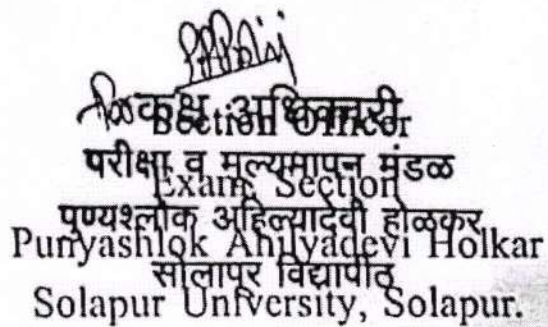 कक्ष अधिकारी
Section Officer
परीक्षा व मुल्यमापन मंडळ
Exam Section
पुण्यश्लोक अहिल्यादेवी होळकर
Punyashlok Ahilyadevi Holkar
सोलापूर विद्यापीठ
Solapur University, Solapur.